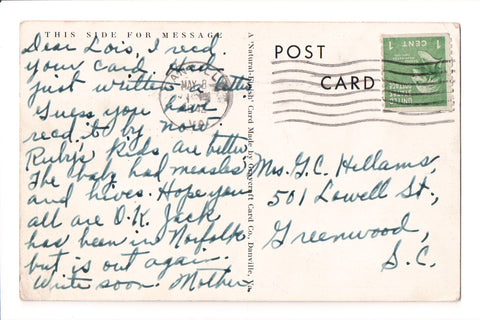 THIS SIDE FOR MESSAGE
Dear Lois, I recd.
your card. Had
just written a letter.
Guess you have
recd. it by now.
Ruby's kids are better,
The baby had measles
and hives. Hope you
all are O.K. Jack
has been in Norfolk
but is out again.
Write soon. Mother
A "Natural Finish" Card Made by Graycraft Card Co., Danville, Va.
DANVILLE
MAY 8
VA.
POST
CARD
1 CENT 1
UNITED STATES POSTAGE
Mrs. G.C. Hellams,
501 Lowell St.,
Greenwood,
S.C.